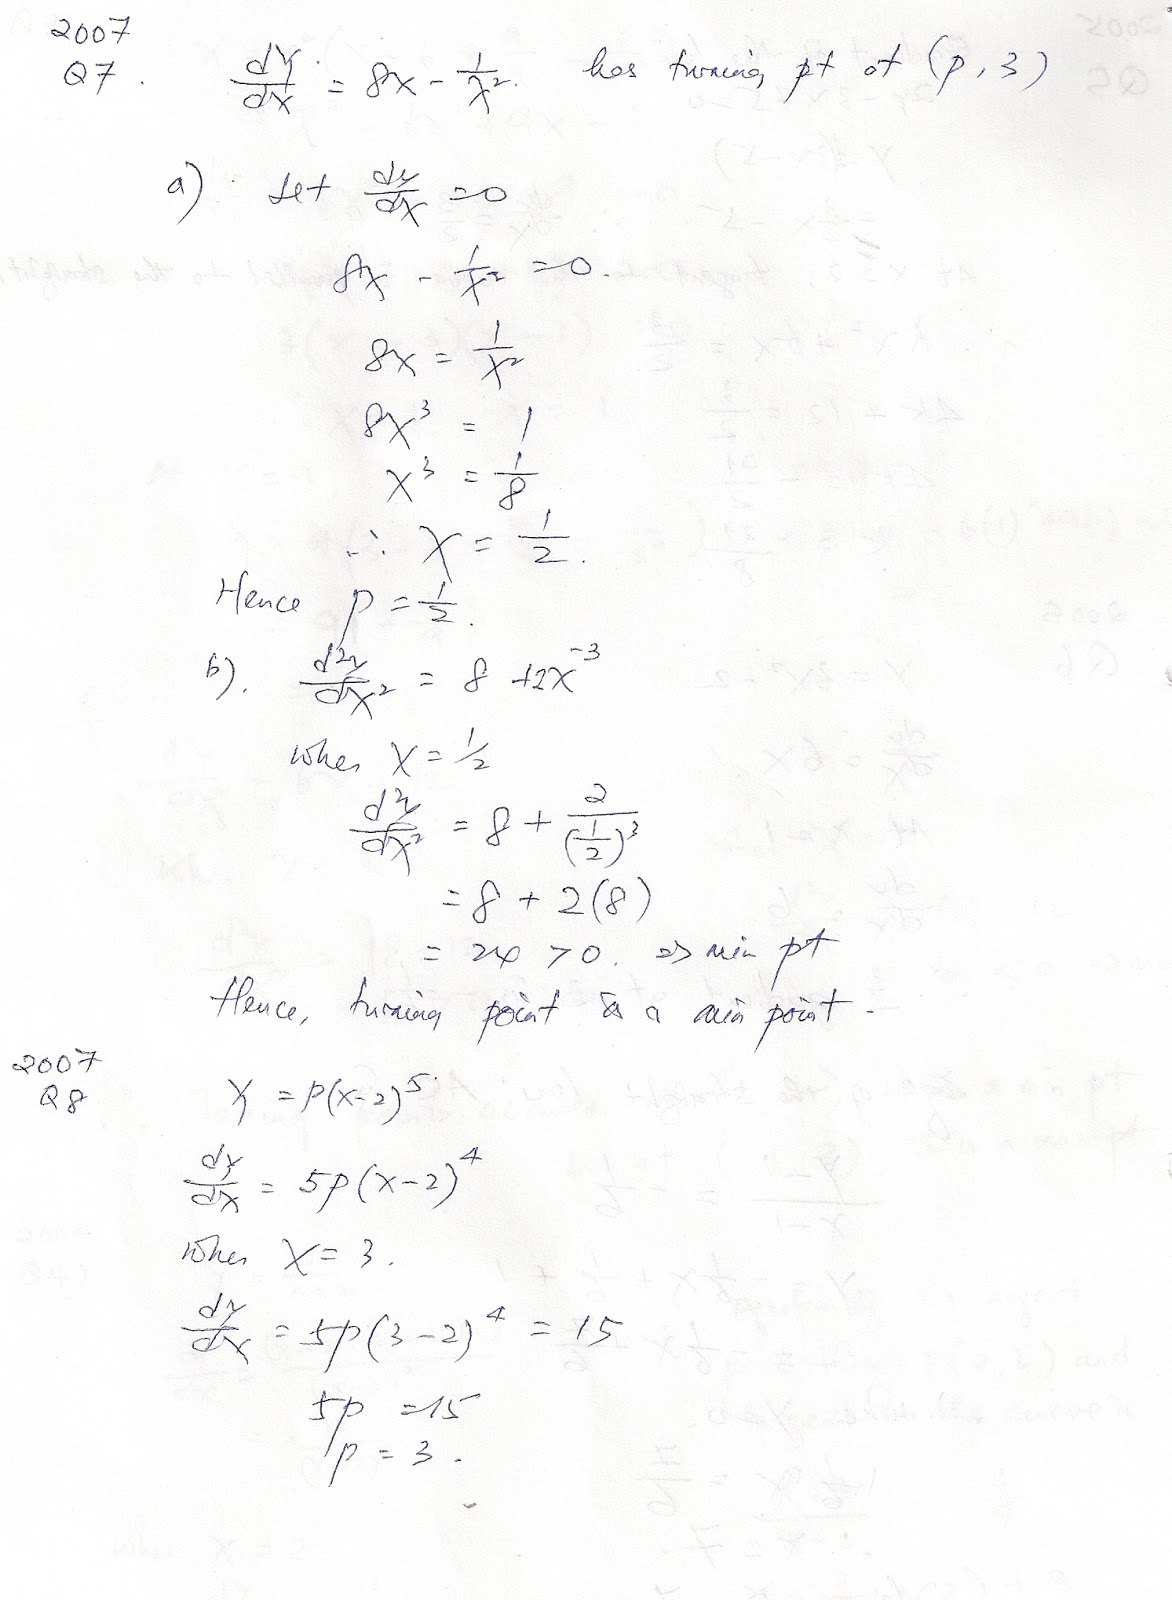 2007
Q7. dy/dx = 8x - 1/x². has turning pt at (p, 3)
a) set dy/dx = 0
8x - 1/x² = 0.
8x = 1/x²
8x³ = 1
x³ = 1/8
∴ x = 1/2.
Hence p = 1/2.
b). d²y/dx² = 8 + 2x⁻³
when x = 1/2
d²y/dx² = 8 + 2/(1/2)³
= 8 + 2(8)
= 24 > 0. => min pt
Hence, turning point is a min point.
2007
Q8 y = p(x-2)⁵
dy/dx = 5p(x-2)⁴
when x = 3.
dy/dx = 5p(3-2)⁴ = 15
5p = 15
p = 3.